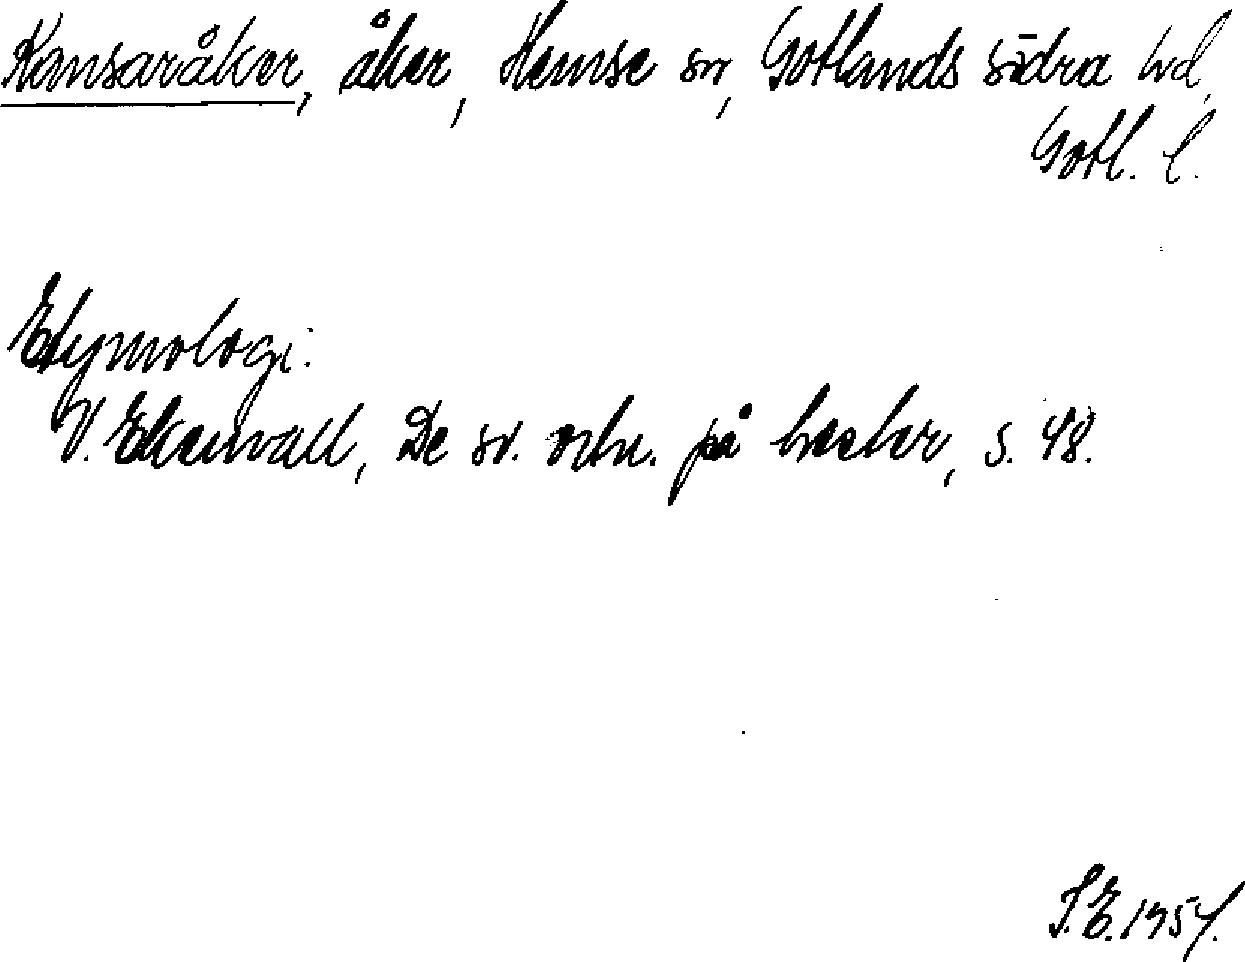 Kansaråker, åker, Hemse sn, Gotlands södra hd,
Gotl. l.
Etymologi:
V. Ekenvall, De sv. ortn. på hester, s. 48.
S.E. 1957.